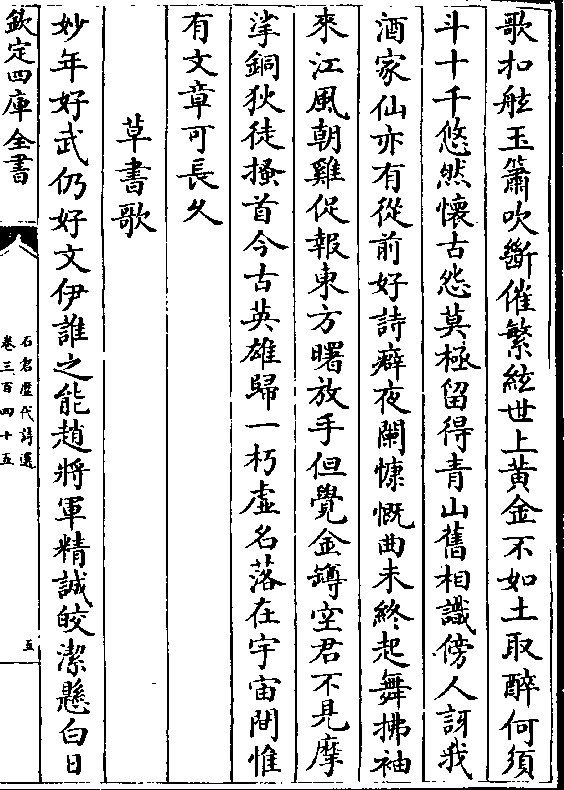 歌扣舷玉簫吹斷催繁絃世上黄金不如土取醉何須
斗十千悠然懷古怨莫極留得青山舊相識傍人訝我
酒家仙亦有從前好詩癖夜闌慷慨曲未終起舞拂袖
來江風朝雞促報東方曙放手但覺金罇空君不見摩
挲銅狄徒搔首今古英雄歸一朽虛名落在宇宙間惟
有文章可長久
草書歌
妙年好武仍好文伊誰之能趙將軍精誠皎潔懸白日
欽定四庫全書
石倉歷代詩選
卷三百四十五
五